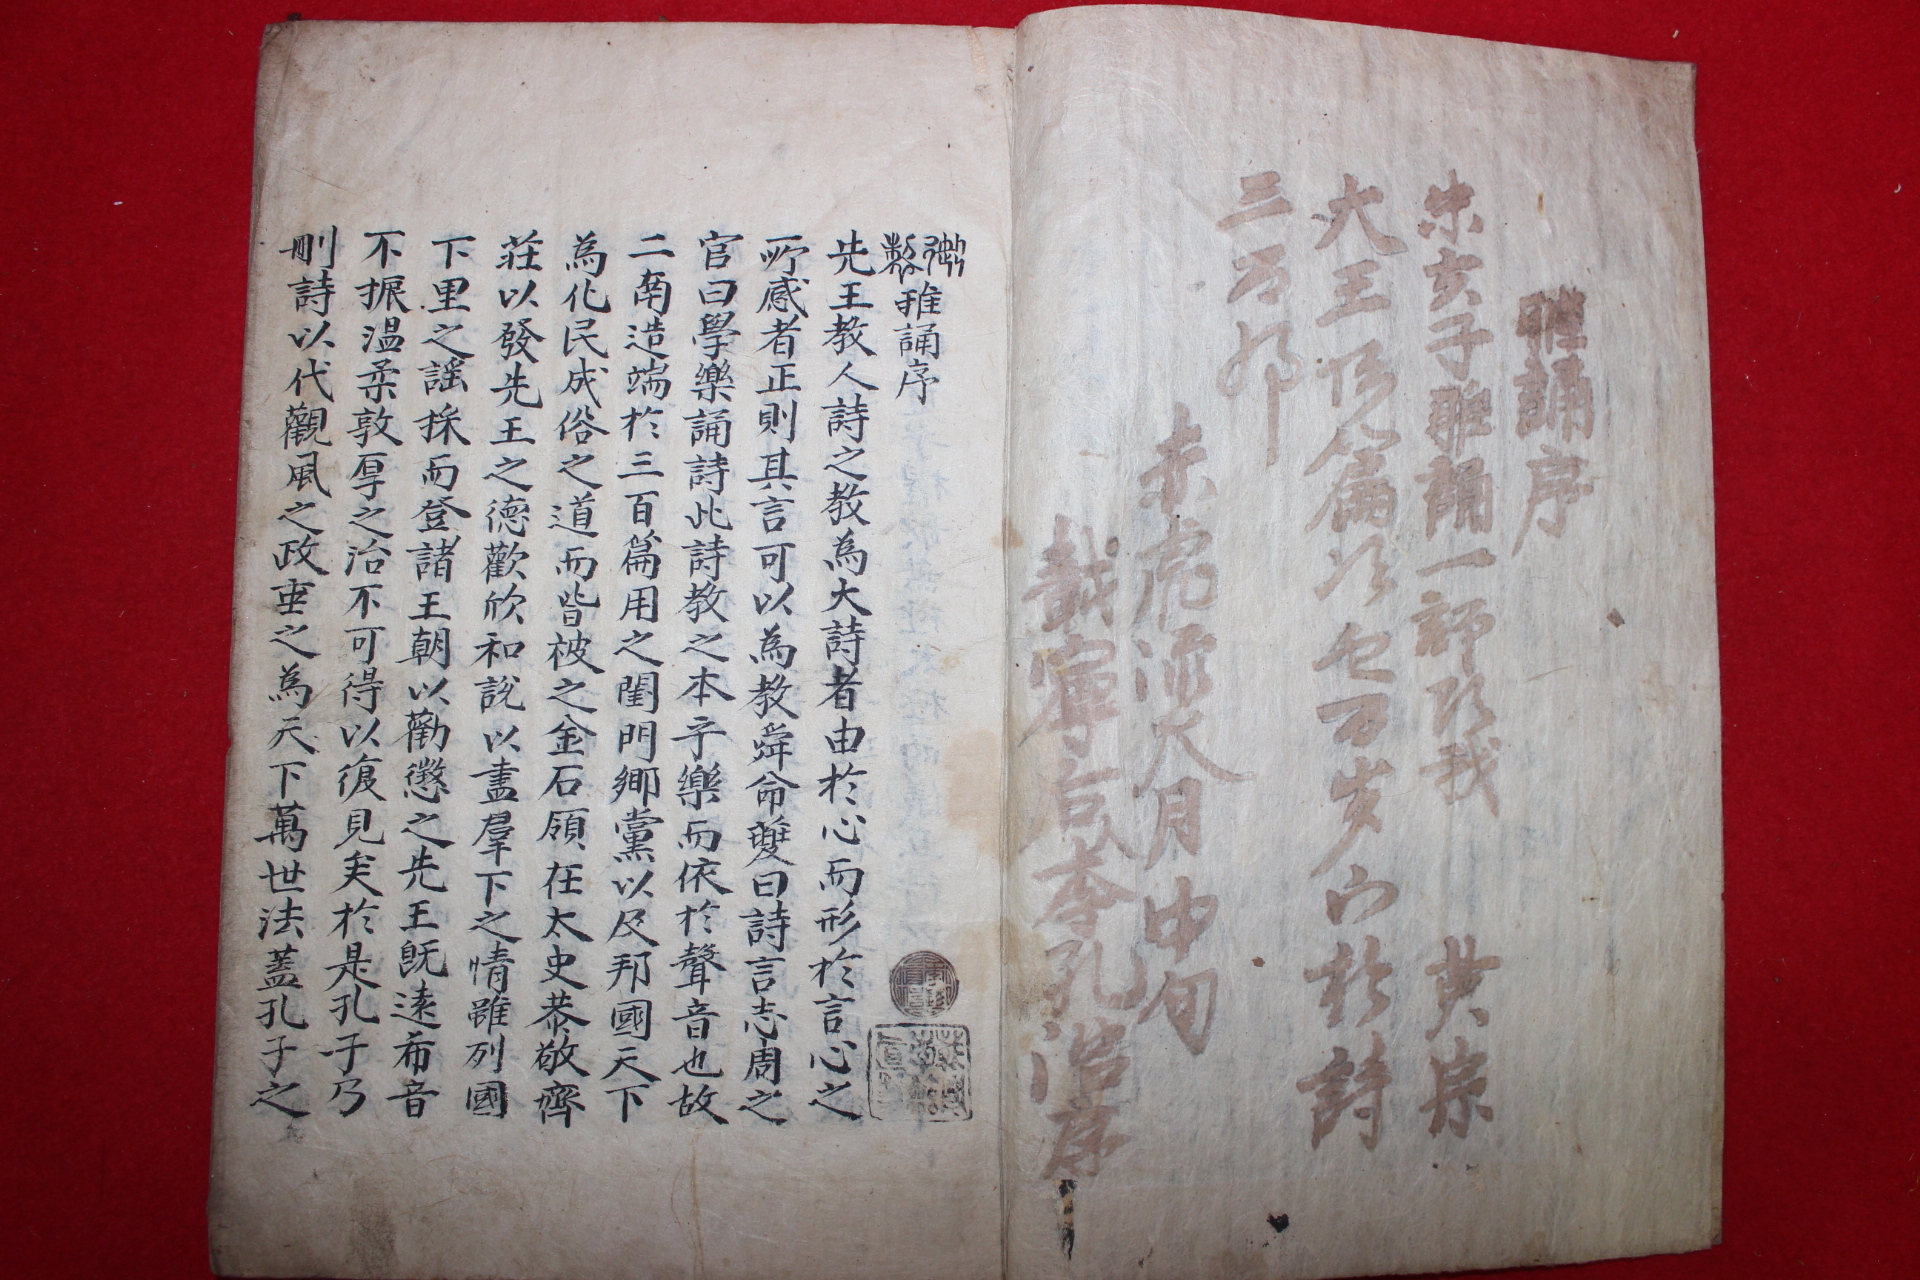 雅誦序
朱玄子雅誦一部 我 黃宗
大王 篇次 於詩
三
赤虎 大月中旬
李孔浩序
御製雅誦序
先王教人詩之教為大詩者由於心而形於言心之
所感者正則其言可以為教舜命夔曰詩言志周之
官曰學樂誦詩此詩教之本乎樂而依於聲音也故
二南造端於三百篇用之閨門鄉黨以及邦國天下
為化民成俗之道而皆被之金石領在太史恭敬齊
莊以發先王之德歡欣和說以盡羣下之情雖列國
下里之謠採而登諸王朝以勸懲之先王既遠希音
不振溫柔敦厚之治不可得以復見矣於是孔子乃
刪詩以代觀風之政垂之為天下萬世法蓋孔子之